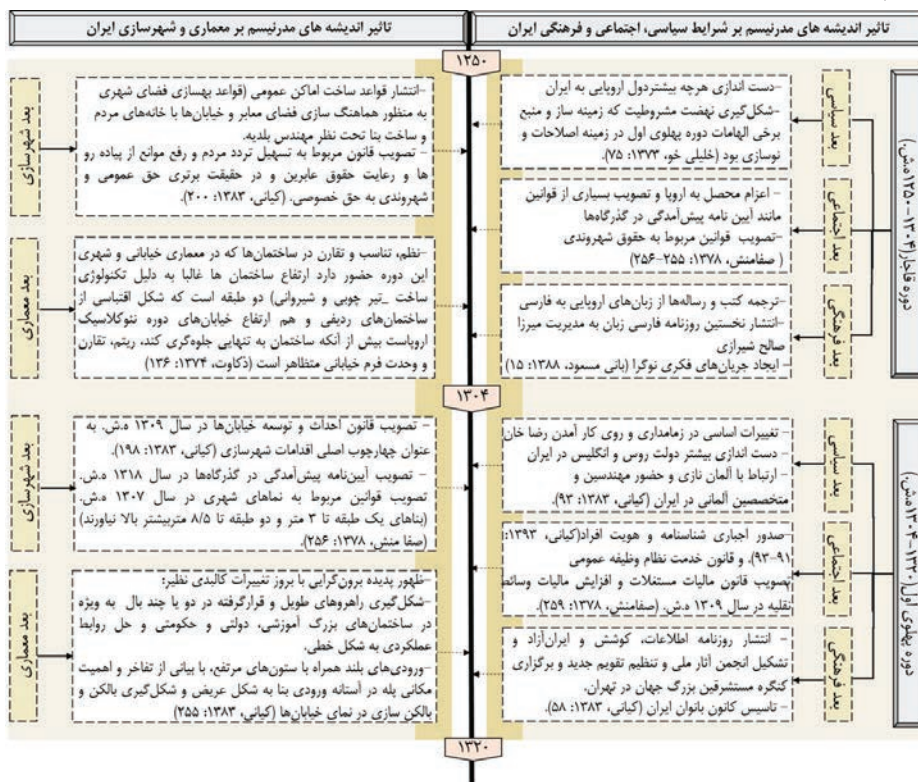 تاثیر اندیشه های مدرنیسم بر شرایط سیاسی، اجتماعی و فرهنگی ایران
تاثیر اندیشه های مدرنیسم بر معماری و شهرسازی ایران
۱۲۵۰
دوره قاجار(۱۳۰۴-۱۲۵۰ه.ش.)
بعد سیاسی
-دست اندازی هرچه بیشتردول اروپایی به ایران
-شکل‌گیری نهضت مشروطیت که زمینه ساز و منبع
برخی الهامات دوره پهلوی اول در زمینه اصلاحات و
نوسازی بود (خلیلی خو، ۱۳۷۳: ۷۵).
بعد اجتماعی
- اعزام محصل به اروپا و تصویب بسیاری از قوانین
مانند آیین نامه پیش‌آمدگی در گذرگاه‌ها
-تصویب قوانین مربوط به حقوق شهروندی
( صفامنش، ۱۳۷۸: ۲۵۵-۲۵۶)
بعد فرهنگی
-ترجمه کتب و رساله‌ها از زبان‌های اروپایی به فارسی
-انتشار نخستین روزنامه فارسی زبان به مدیریت میرزا
صالح شیرازی
- ایجاد جریان‌های فکری نوگرا (بانی مسعود، ۱۳۸۸: ۱۵)
بعد شهرسازی
-انتشار قواعد ساخت اماکن عمومی (قواعد بهسازی فضای شهری
به منظور هماهنگ سازی فضای معابر و خیابان‌ها با خانه‌های مردم
و ساخت بنا تحت نظر مهندس بلدیه.
- تصویب قانون مربوط به تسهیل تردد مردم و رفع موانع از پیاده رو
ها و رعایت حقوق عابرین و در حقیقت برتری حق عمومی و
شهروندی به حق خصوصی. (کیانی، ۱۳۸۳: ۲۰۰).
بعد معماری
نظم، تناسب و تقارن در ساختمان‌ها که در معماری خیابانی و شهری
این دوره حضور دارد ارتفاع ساختمان ها غالبا به دلیل تکنولوژی
ساخت _تیر چوبی و شیروانی) دو طبقه است که شکل اقتباسی از
ساختمان‌های ردیفی و هم ارتفاع خیابان‌های دوره نئوکلاسیک
اروپاست بیش از آنکه ساختمان به تنهایی جلوه‌گری کند، ریتم، تقارن
و وحدت فرم خیابانی متظاهر است (ذکاوت، ۱۳۷۴: ۱۳۶)
۱۳۰۴
دوره پهلوی اول(۱۳۲۰-۱۳۰۴ه.ش.)
بعد سیاسی
- تغییرات اساسی در زمامداری و روی کار آمدن رضا خان
- دست اندازی بیشتر دولت روس و انگلیس در ایران
- ارتباط با آلمان نازی و حضور مهندسین و
متخصصین آلمانی در ایران (کیانی، ۱۳۸۳: ۹۳).
بعد اجتماعی
-صدور اجباری شناسنامه و هویت افراد(کیانی، ۱۳۹۳:
۹۱-۹۳). و قانون خدمت نظام وظیفه عمومی
تصویب قانون مالیات مستغلات و افزایش مالیات وسائط
نقلیه در سال ۱۳۰۹ ه.ش. (صفامنش، ۱۳۷۸: ۲۵۹).
بعد فرهنگی
- انتشار روزنامه اطلاعات، کوشش و ایران‌آزاد و
تشکیل انجمن آثار ملی و تنظیم تقویم جدید و برگزاری
کنگره مستشرقین بزرگ جهان در تهران.
- تاسیس کانون بانوان ایران (کیانی، ۱۳۸۳: ۵۸).
بعد شهرسازی
- تصویب قانون احداث و توسعه خیابان‌ها در سال ۱۳۰۹ ه.ش. به
عنوان چهارچوب اصلی اقدامات شهرسازی (کیانی، ۱۳۸۳: ۱۹۸).
- تصویب آیین‌نامه پیش‌آمدگی در گذرگاه‌ها در سال ۱۳۱۸ ه.ش.
تصویب قوانین مربوط به نماهای شهری در سال ۱۳۰۷ ه.ش.
(بناهای یک طبقه تا ۳ متر و دو طبقه تا ۸/۵ متربیشتر بالا نیاورند)
(صفا منش، ۱۳۷۸: ۲۵۶).
بعد معماری
-ظهور پدیده برون‌گرایی با بروز تغییرات کالبدی نظیر:
-شکل‌گیری راهروهای طویل و قرارگرفته در دو یا چند بال به ویژه
در ساختمان‌های بزرگ آموزشی، دولتی و حکومتی و حل روابط
عملکردی به شکل خطی.
-ورودی‌های بلند همراه با ستون‌های مرتفع، با بیانی از تفاخر و اهمیت
مکانی پله در آستانه ورودی بنا به شکل عریض و شکل‌گیری بالکن و
بالکن سازی در نمای خیابان‌ها (کیانی، ۱۳۸۳: ۲۵۵)
۱۳۲۰